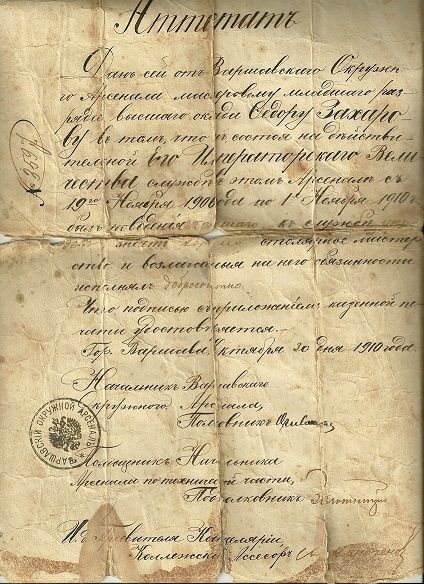 Аттестатъ
Данъ сей отъ Варшавскаго Окружн-
го Арсенала мастеровому младшаго раз-
ряда высшаго оклада Ѳедору Захаро-
ву въ томъ, что и состоя на дѣйстви-
тельной Его Императорскаго Вели-
чества службѣ этомъ Арсеналѣ съ
19го Ноября 1906 года по 1е Ноября 1910 г.
былъ поведенія къ службѣ
столярное мастер-
ство и возлагаемыя на него обязанности
исполнялъ добросовѣстно.
Что подписью съ приложеніемъ казенной пе-
чати удостовѣряется.
Гор. Варшава, Октября 20 дня 1910 года.
Начальникъ Варшавскаго
Окружного Арсенала,
Полковникъ
ВАРШАВСКІЙ ОКРУЖНОЙ АРСЕНАЛЪ
Помощникъ Начальника
Арсенала по технической части,
Подполковникъ
И. д. Правителя Канцеляріи,
Коллежскій Ассесоръ
№ 2697